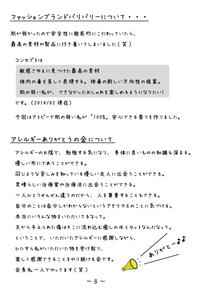 ファッションブランドバリバリーについて・・・
肌が弱かったので安全性に徹底的にこだわっていたら、
最高の素材の製品に行き着いてしまいました(笑)
コンセプトは
敏感さゆえに見つけた最高の素材
体内の美を美しく表現する。極番の新しい方向性の提案。
肌の弱い私が、できなかったおしゃれを楽しめるようになりたい!
です。(2014/02 現在)
今回はアトピーで肌の弱い私が「100%」安心できる香りを作りました。
アレルギーありがとうの会について
アレルギーのお陰で、勉強する気になり、身体に良いものの知識も深まる。
優しい布にであうことができる。
同じような苦しみを知っている優しい友人に出会うことができる。
素晴らしい治療家や治療法に出会うことができる。
一人ひとりぜんぜん違うのだから、人を尊重することもできる。
自分のことは自分しかわからないというアタリマエのことに気づける。
本当にいろんな物をいただいてるなって。
天から与えられた傷はそこに流れ込む癒しの水とセットなんだなって。
ということで、いただいたアレルギーに感謝しながら、
ひたすら私がいただいた物を受け取り、
楽しく感謝できることをやり続ける会です。
会長私一人でやってます(笑)
ありがとう
～ 8 ～